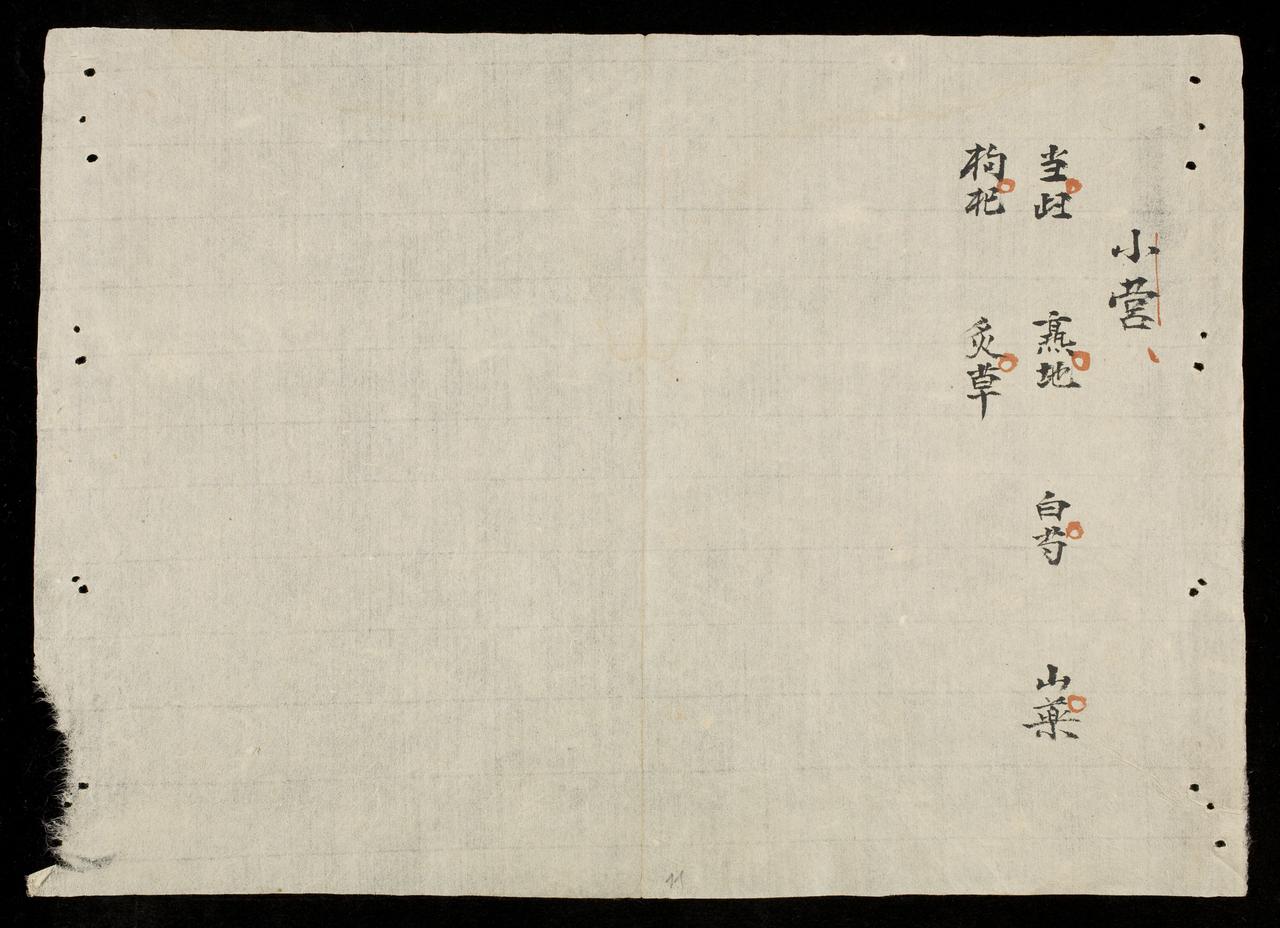 小營
当歸 熟地 白芍 山藥
枸杞 炙草
11